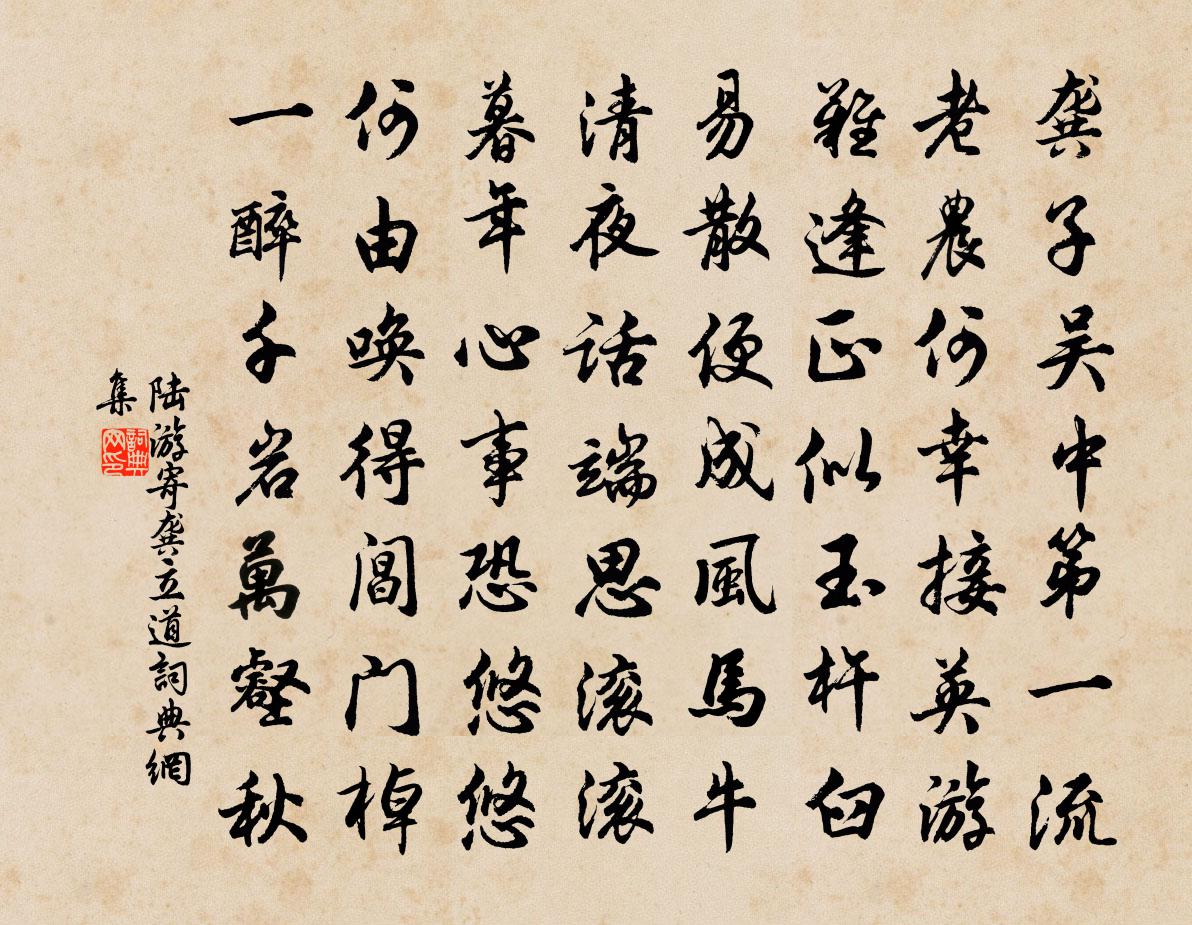 龚子吴中第一流
老農何幸接英游
難逢正似玉杵臼
易散便成風馬牛
清夜話端思滚滚
暮年心事恐悠悠
何由唤得閶门棹
一醉千岩萬壑秋
陆游寄龚立道詞典網
集
詞典
网印